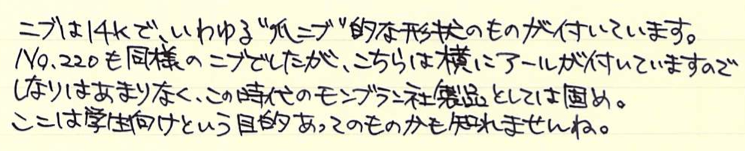 ニブは14Kで、いわゆる"爪ニブ"的な形状のものが付いています。
No.220も同様のニブでしたが、こちらは横にアールが付いていますので
しなりはあまりなく、この時代のモンブラン社製品としては固め。
ここは学生向けという目的あってのものかも知れませんね。